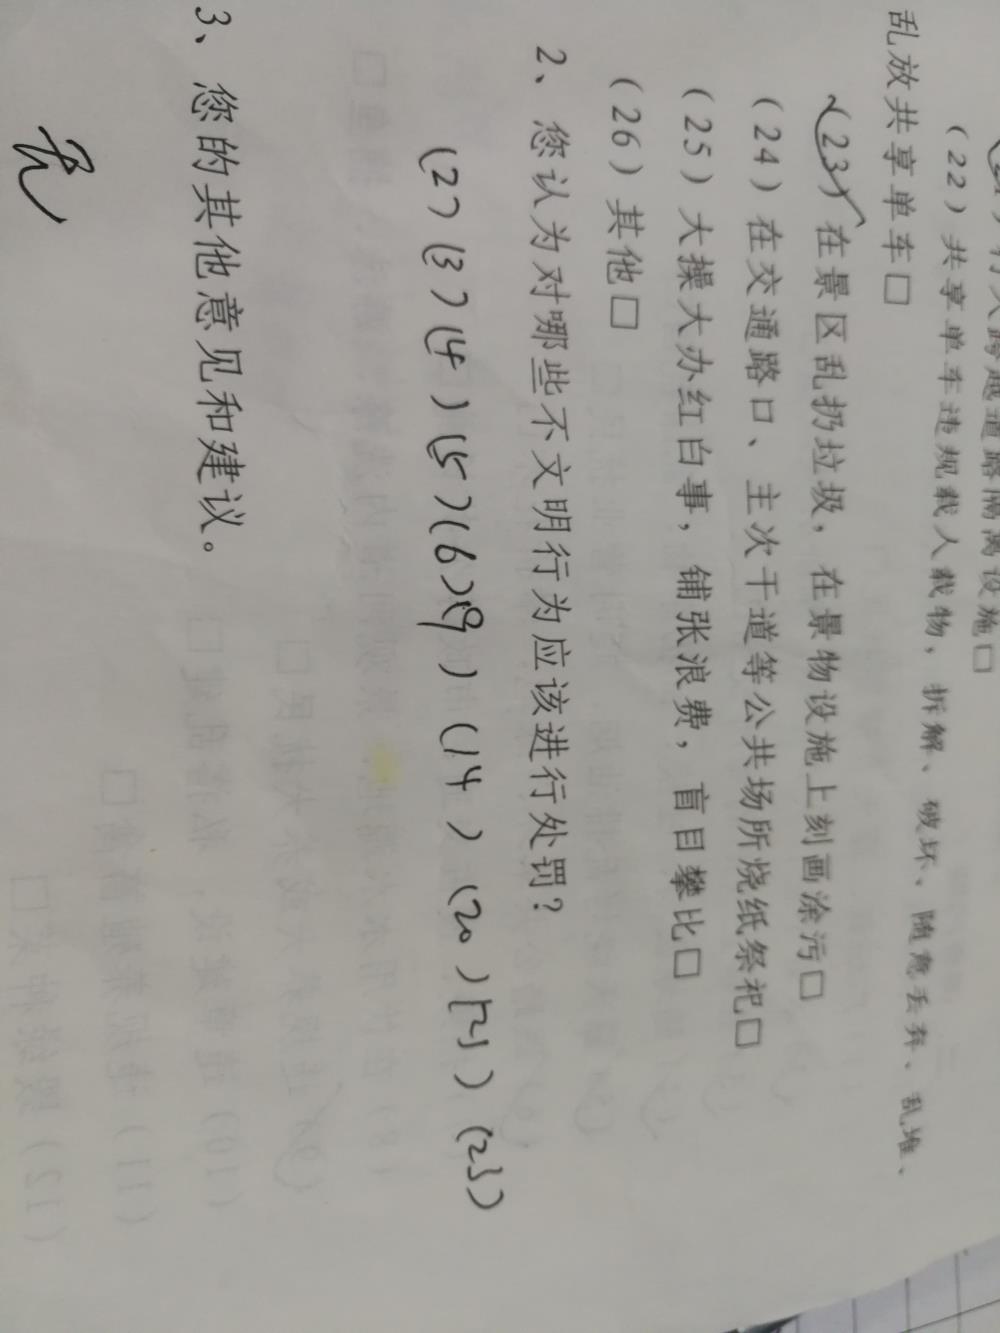 行人跨越道路隔离设施□
（22）共享单车违规载人载物，拆解、破坏、随意丢弃、乱堆、
乱放共享单车□
（23）在景区乱扔垃圾，在景物设施上刻画涂污□
（24）在交通路口、主次干道等公共场所烧纸祭祀□
（25）大操大办红白事，铺张浪费，盲目攀比□
（26）其他□
2、您认为对哪些不文明行为应该进行处罚？
(2)(3)(4)(5)(6)(9)(14)(20)(21)(23)
3、您的其他意见和建议。
无